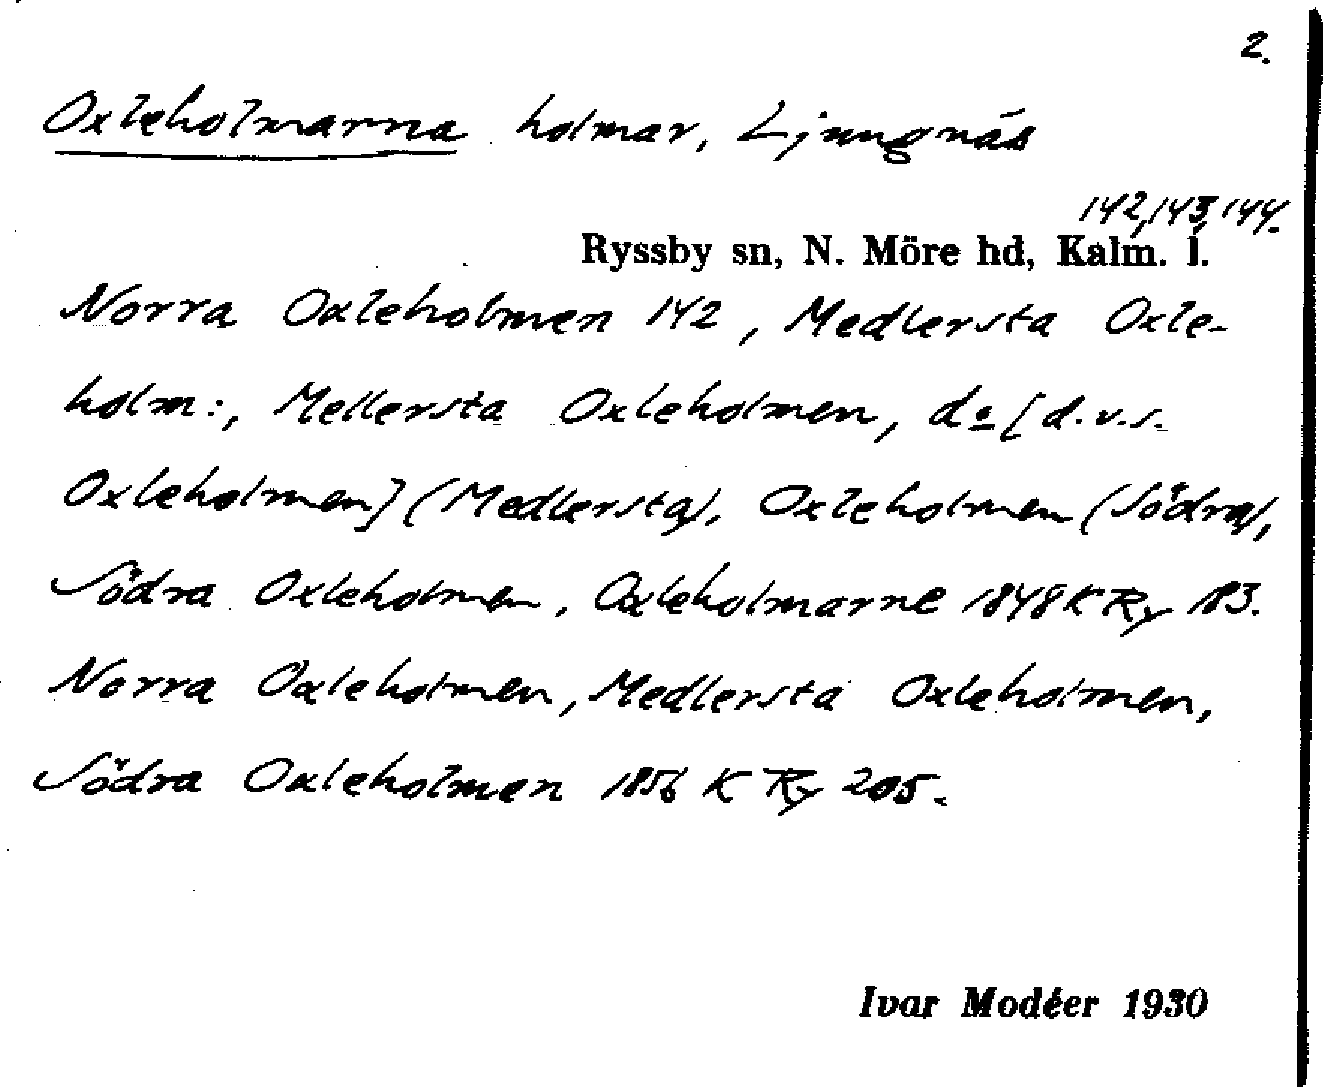 2.
Oxleholmarna holmar, Ljungnäs
142, 143, 144.
Ryssby sn, N. Möre hd, Kalm. l.
Norra Oxleholmen 142, Medlersta Oxle-
holm:, Mellersta Oxleholmen, do [d.v.s.
Oxleholmen] (Medlersta), Oxleholmen (Södra),
Södra Oxleholmen, Oxleholmarne 1848 K Ry 183.
Norra Oxleholmen, Medlersta Oxleholmen,
Södra Oxleholmen 1856 K Ry 205.
Ivar Modéer 1930